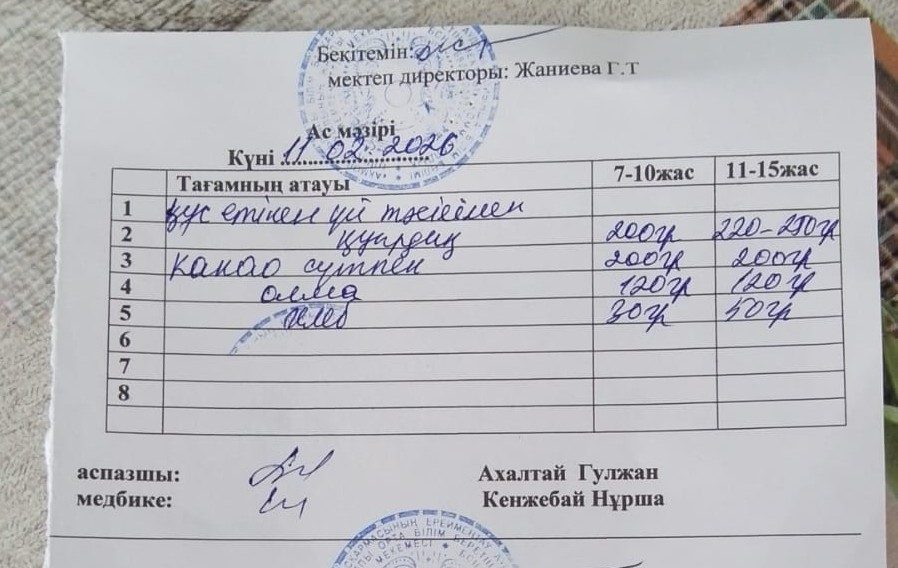 Бекітемін:
мектеп директоры: Жаниева Г.Т
Ас мәзірі
Күні 11 02. 2026
Тағамның атауы 7-10жас 11-15жас
1 құс етінен үй
2 қуырдақ 200гр 220-250гр
3 какао сүтпен 200гр 200гр
4 алма 120гр 120гр
5 30гр 50гр
6
7
8
аспазшы: Ахалтай Гулжан
медбике: Кенжебай Нұрша
ЕРЕЙМЕНТАУ
ОРТА БІЛІМ БЕРЕТІН
МЕКЕМЕСІ